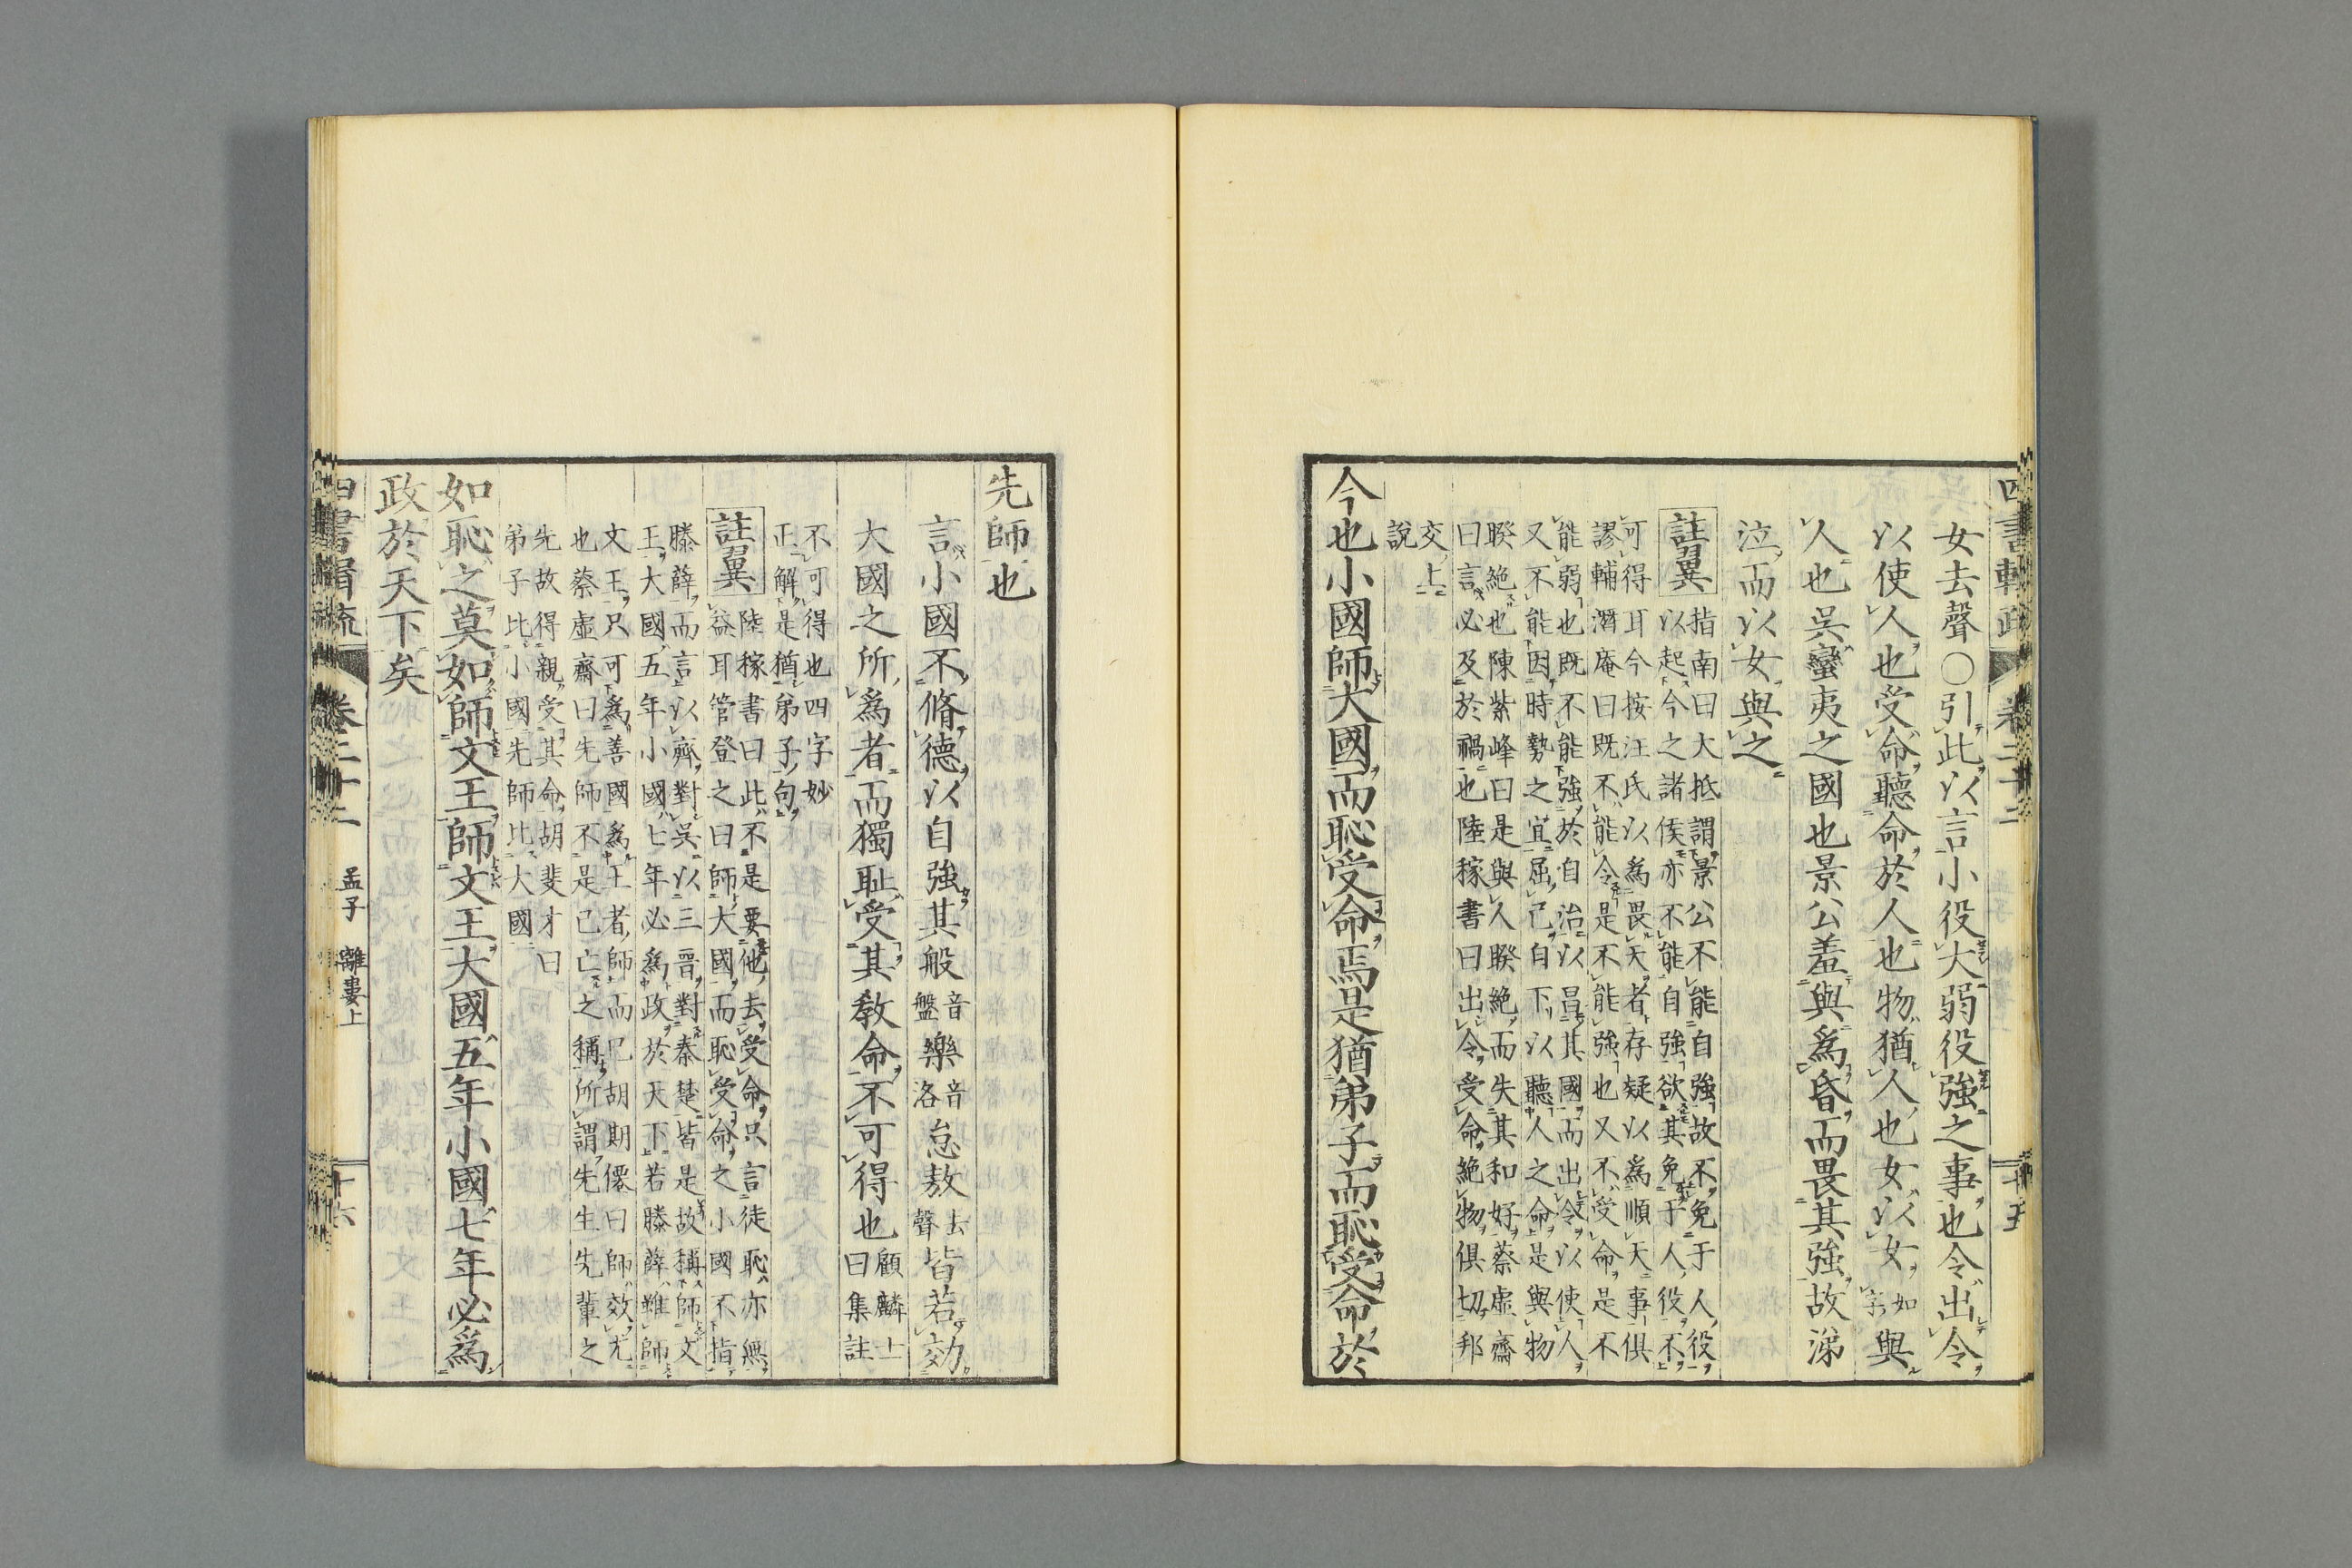 女去聲○引此以言小役大弱役強之事也令出令
以使人也受命聽命於人也物猶人也女以女如字與
人也吳蠻夷之國也景公羞與爲昏而畏其強故涕
泣而以女與之
註翼
指南曰大抵謂景公不能自強故不免于人役
以起今之諸侯亦不能自強欲其免于人役不
可得耳今按汪氏以爲畏天者存疑以爲順天事俱
謬輔潛庵曰既不能令是不能強也又不受命是不
能弱也既不能強於自治以昌其國而出令以使人
又不能因時勢之宜屈己自下以聽人之命是與物
睽絶也陳紫峰曰是與人睽絶而失其和好蔡虛齋
曰言必及於禍也陸稼書曰出令受命絶物俱切邦
交上
說
今也小國師大國而恥受命焉是猶弟子而恥受命於
先師也
言小國不脩德以自強其般音盤樂音洛怠敖去聲皆若効
大國之所爲者而獨耻受其教命不可得也顧麟士曰集註
不可得也四字妙
正解是猶弟子句
註翼
陸稼書曰此不是要他去受命只言徒恥亦無
益耳管登之曰師大國而恥受命之小國不指
滕薛而言以齊對吳以三晉對秦楚皆是故稱師文
王大國五年小國七年必爲政於天下若滕薛雖師
文王只可爲善國爲王者師而已胡期僊曰師效尤
也蔡虛齋曰先師不是已亡之稱所謂先生先輩之
先故得親受其命胡斐才曰
弟子比小國先師比大國
如恥之莫如師文王師文王大國五年小國七年必爲
政於天下矣
卷二十二
孟子 離婁上
十六